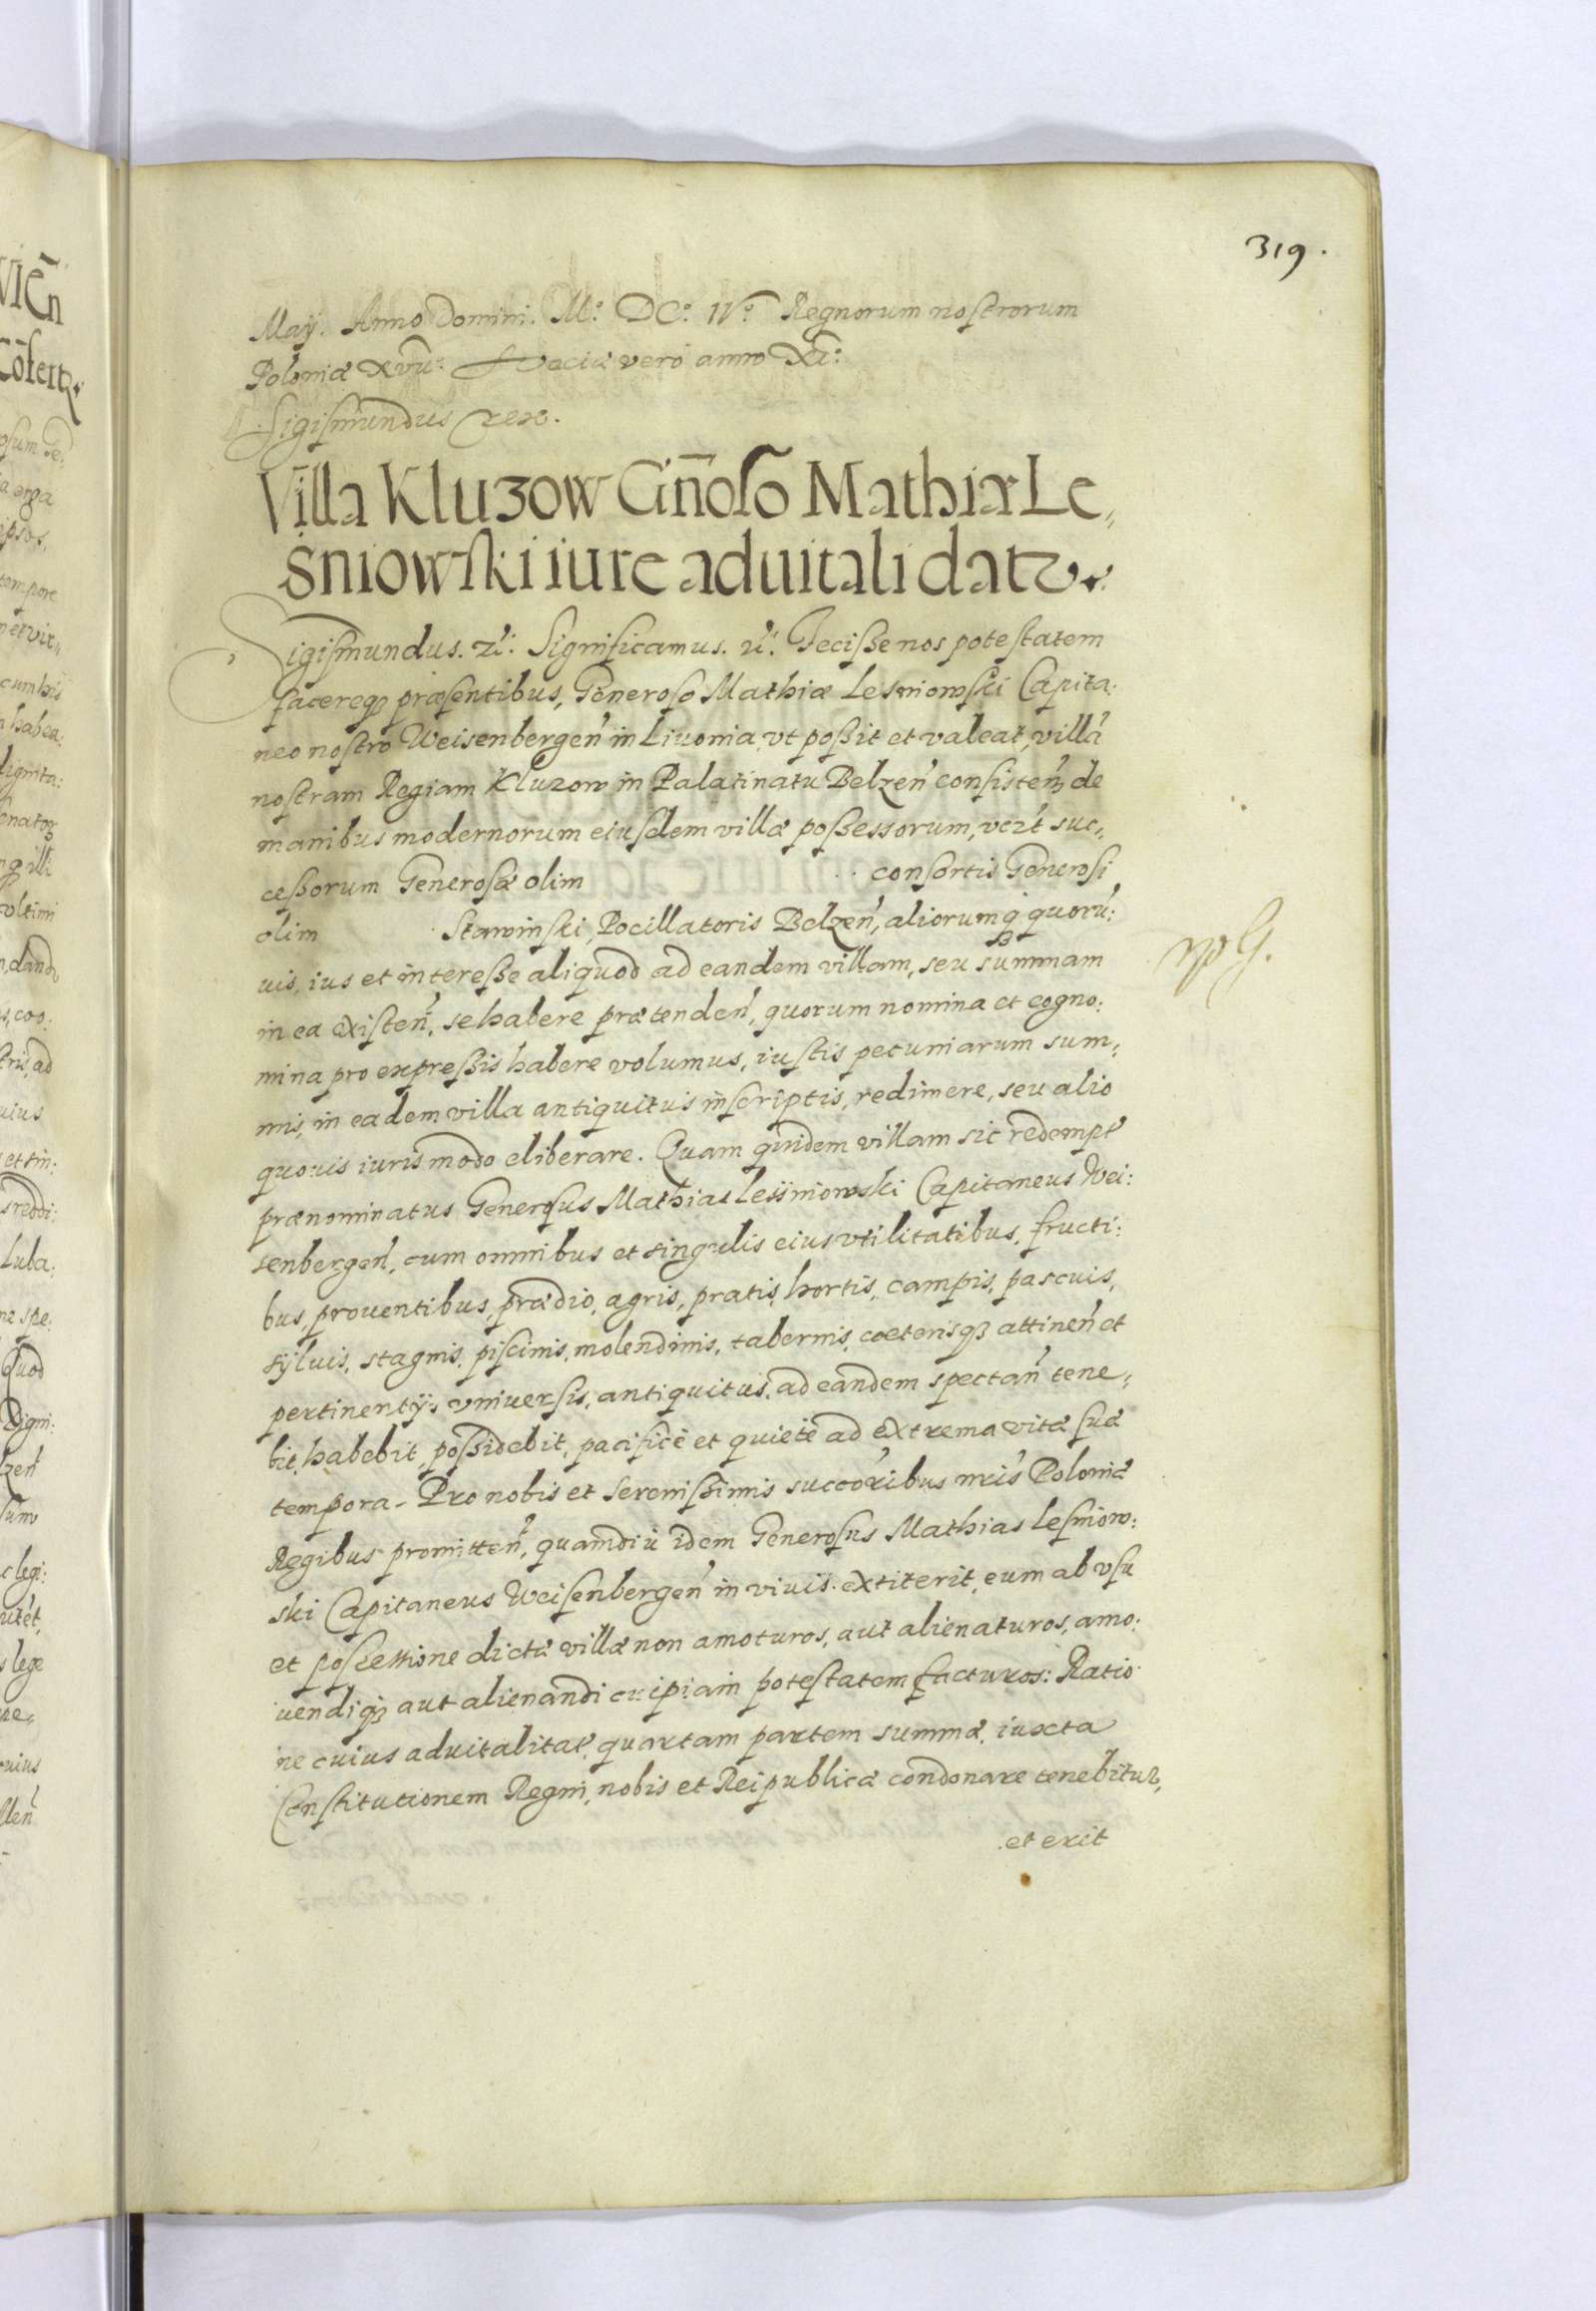 319.
May. Anno Domini. M.° DC.° IV.° Regnorum nostrorum
Poloniæ xvii. Sueciæ vero anno XI.°
Sigismundus Rex.
Villa Kluzow Gñoso Mathiæ Le„
śniowski iure aduitali datz.
Sigismundus. Significamus. Fecisse nos potestatem
facereq3 præsentibus, Generoso Mathiæ Lesniowski Capita:
neo nostro Weisenbergeñ in Liuonia, vt possit et valeat, villā
nostram Regiam Kluzow in Palatinatu Belzeñ consisteñ, de
manibus modernorum eiusdem villæ possessorum, vezt suc„
cessorum Generosæ olim consortis Generosi
olim Stawinski, Pocillatoris Belzeñ, aliorumq quorū:
uis, ius et interesse aliquod ad eandem villam, seu summam
in ea existeñ, se habere prætendeñ, quorum nomina et cogno:
mina pro expressis habere volumus, iustis pecuniarum sum„
mis, in eadem villa antiquitus inscriptis, redimere, seu alio
quouis iuris modo eliberare. Quam quidem villam sic redempt
prænominatus Generosus Mathias Lesniowski Capitaneus Wei:
senbergeñ, cum omnibus et singulis eius vtilitatibus, fructi:
bus, prouentibus, prædio, agris, pratis, hortis, campis, pascuis,
syluis, stagnis, piscinis, molendinis, tabernis, cæterisq3 attineñ et
pertinentijs vniuersis, antiquitus, ad eandem spectañ tene„
bit, habebit, possidebit, pacificè et quietè ad extrema vitæ suæ
tempora. Pro nobis et Serenissimis succoribus nris Poloniæ
Regibus promitteñ, quamdiù idem Generosus Mathias Lesniow:
ski Capitaneus Weisenbergeñ in viuis extiterit, eum ab vsu
et possessione dictæ villæ non amoturos, aut alienaturos, amo:
uendiq3 aut alienandi cuipiam potestatem facturos: Ratio
ne cuius aduitalitat, quartam partem summæ, iuxta
Constitutionem Regni, nobis et Reipublicæ condonare tenebitur,
et erit